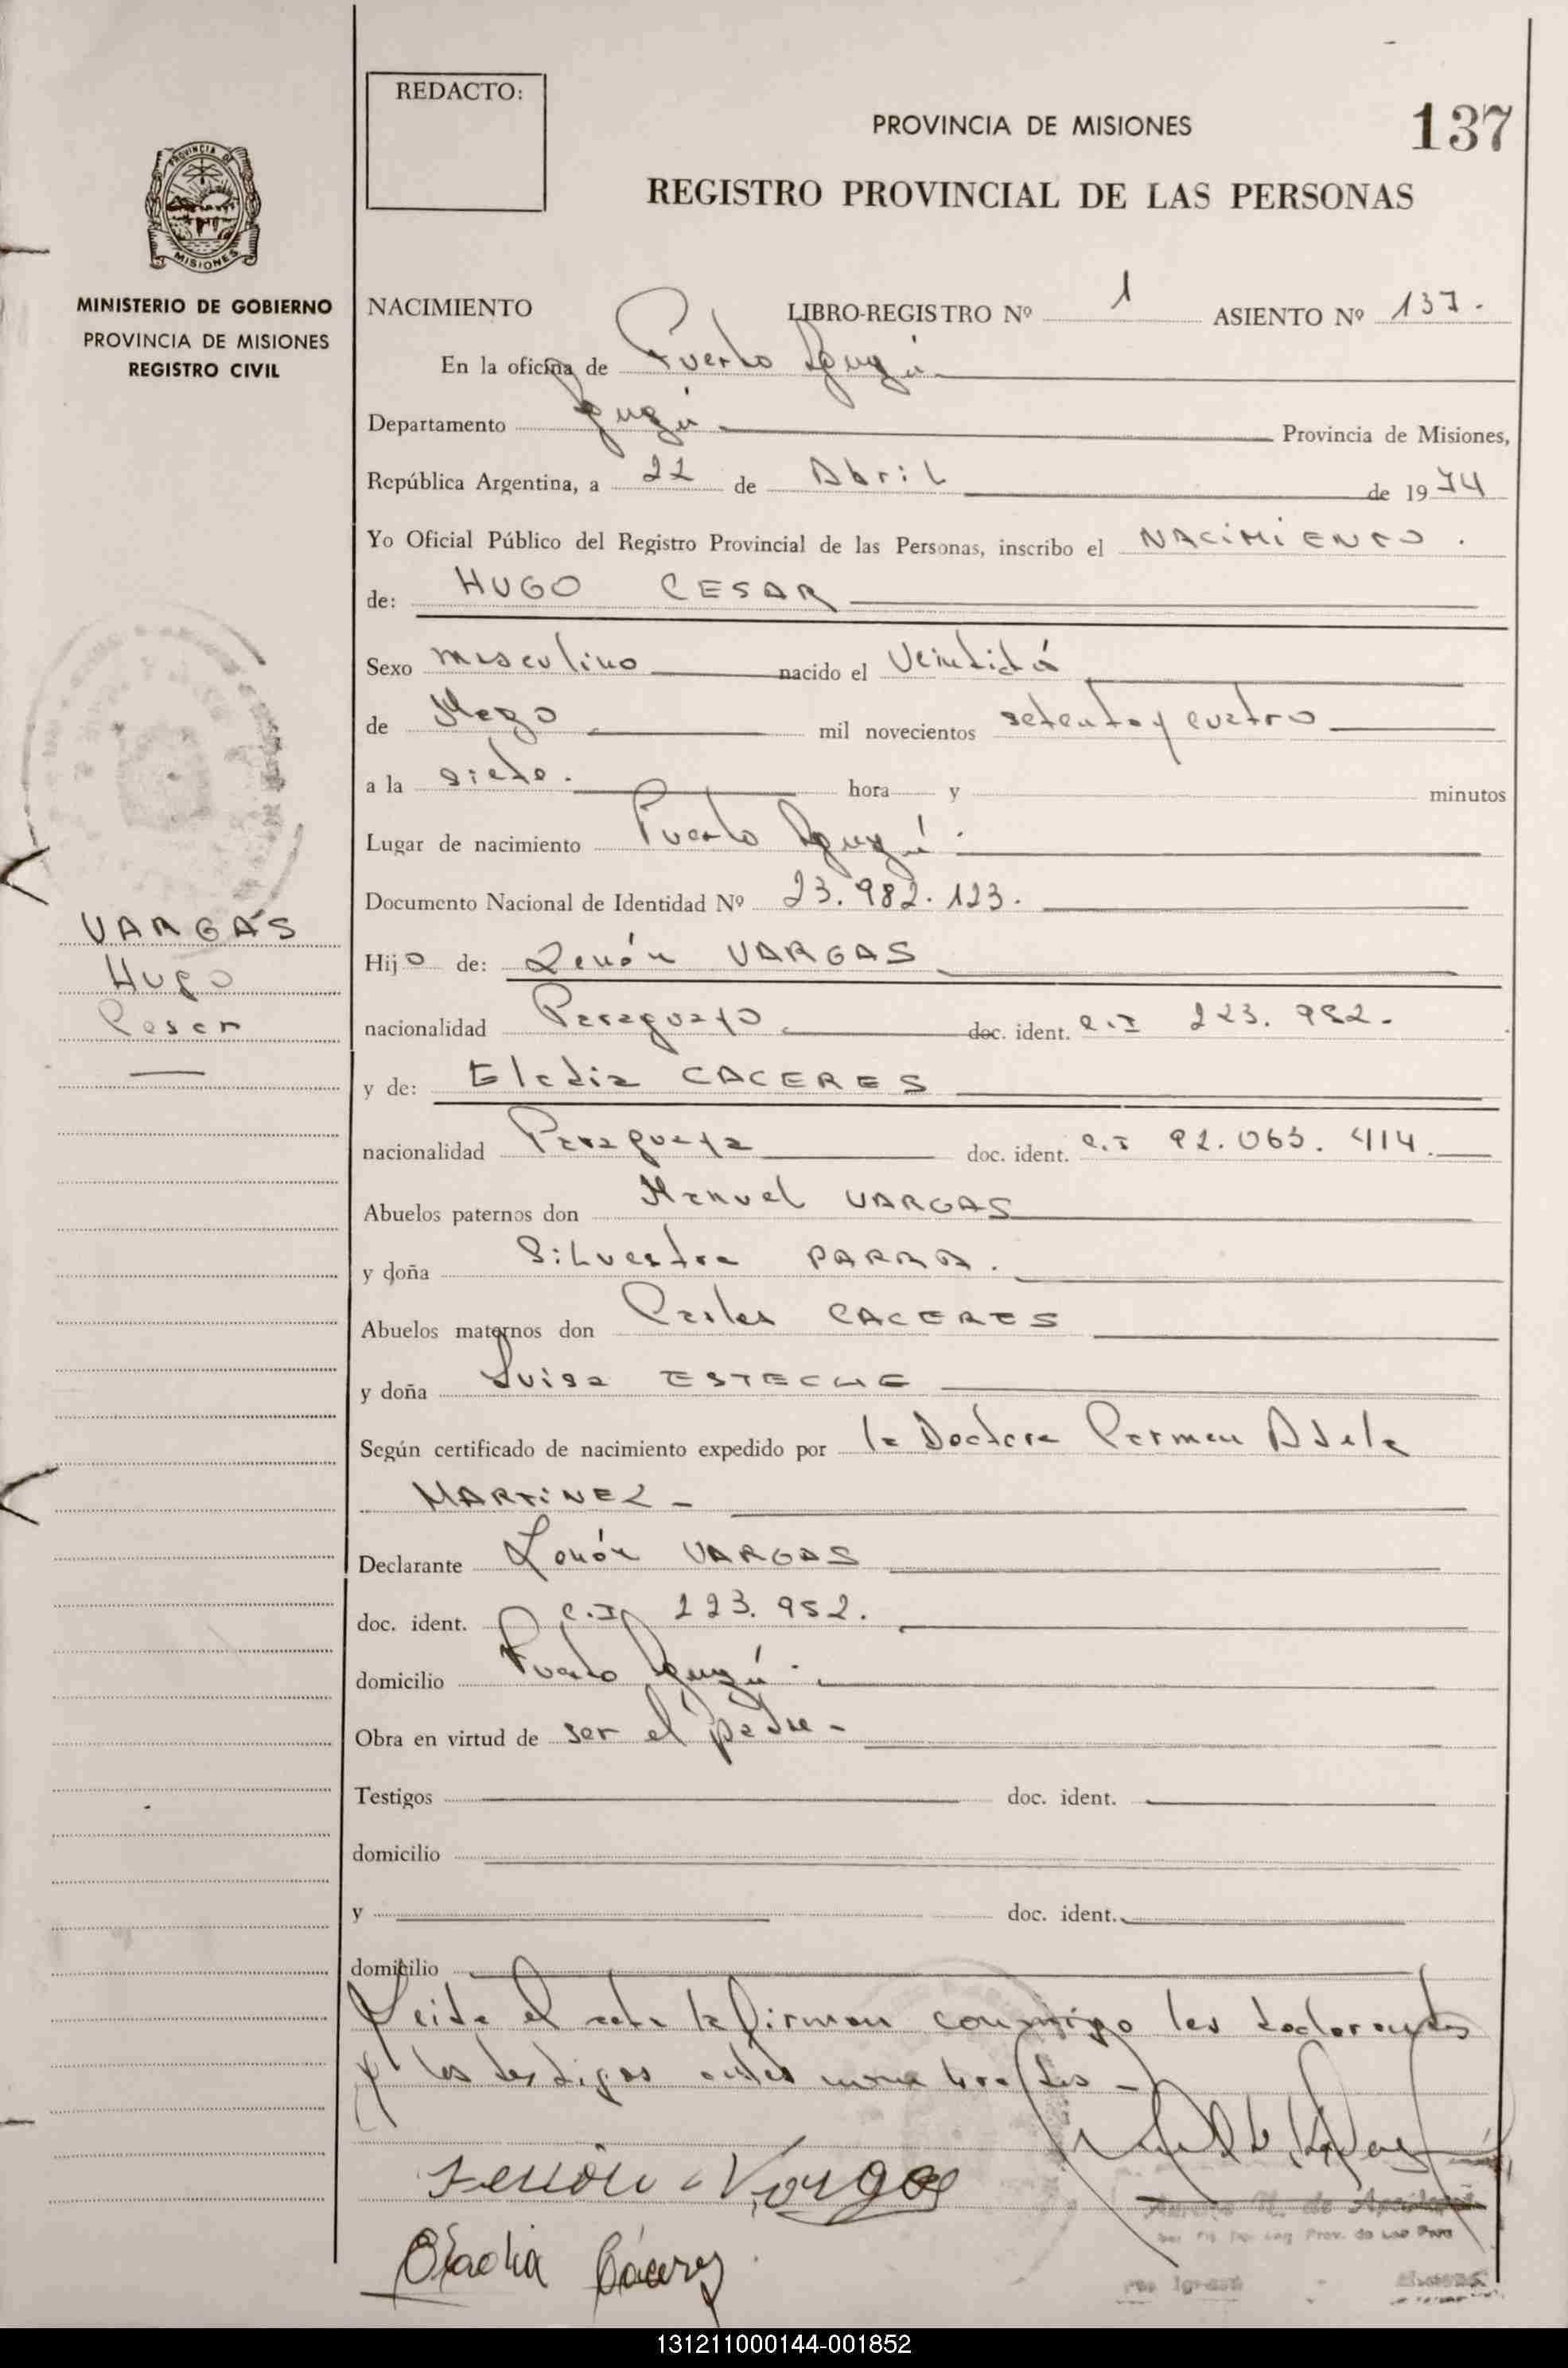 REDACTO:
PROVINCIA DE MISIONES
137
REGISTRO PROVINCIAL DE LAS PERSONAS
PROVINCIA DE
MISIONES
MINISTERIO DE GOBIERNO
PROVINCIA DE MISIONES
REGISTRO CIVIL
NACIMIENTO LIBRO-REGISTRO Nº 1 ASIENTO Nº 137.
En la oficina de Puerto Iguazú
Departamento Iguazú Provincia de Misiones,
República Argentina, a 22 de Abril de 1974
Yo Oficial Público del Registro Provincial de las Personas, inscribo el NACIMIENTO.
de: HUGO CESAR
Sexo masculino nacido el
de mil novecientos setenta y cuatro
a la siete. hora y minutos
Lugar de nacimiento Puerto Iguazú.
Documento Nacional de Identidad Nº 23.982.123.
VARGAS
Hugo
Cesar
Hijo de: Zenón VARGAS
nacionalidad Paraguayo doc. ident. C.I 223.952.
y de: Eladia CACERES
nacionalidad Paraguaya doc. ident. C.I 92.063.414.
Abuelos paternos don Manuel VARGAS
y doña Silvestra PARRA.
Abuelos maternos don Carlos CACERES
y doña Luisa ESTECHE
Según certificado de nacimiento expedido por la Doctora Carmen Adela
MARTINEZ -
Declarante Zenón VARGAS
doc. ident. C.I 223.952.
domicilio Puerto Iguazú.
Obra en virtud de ser el padre -
Testigos doc. ident.
domicilio
y doc. ident.
domicilio
Leida el acta la firman conmigo los declarantes
y los testigos
Zenón Vargas
Eladia Cáceres
131211000144-001852